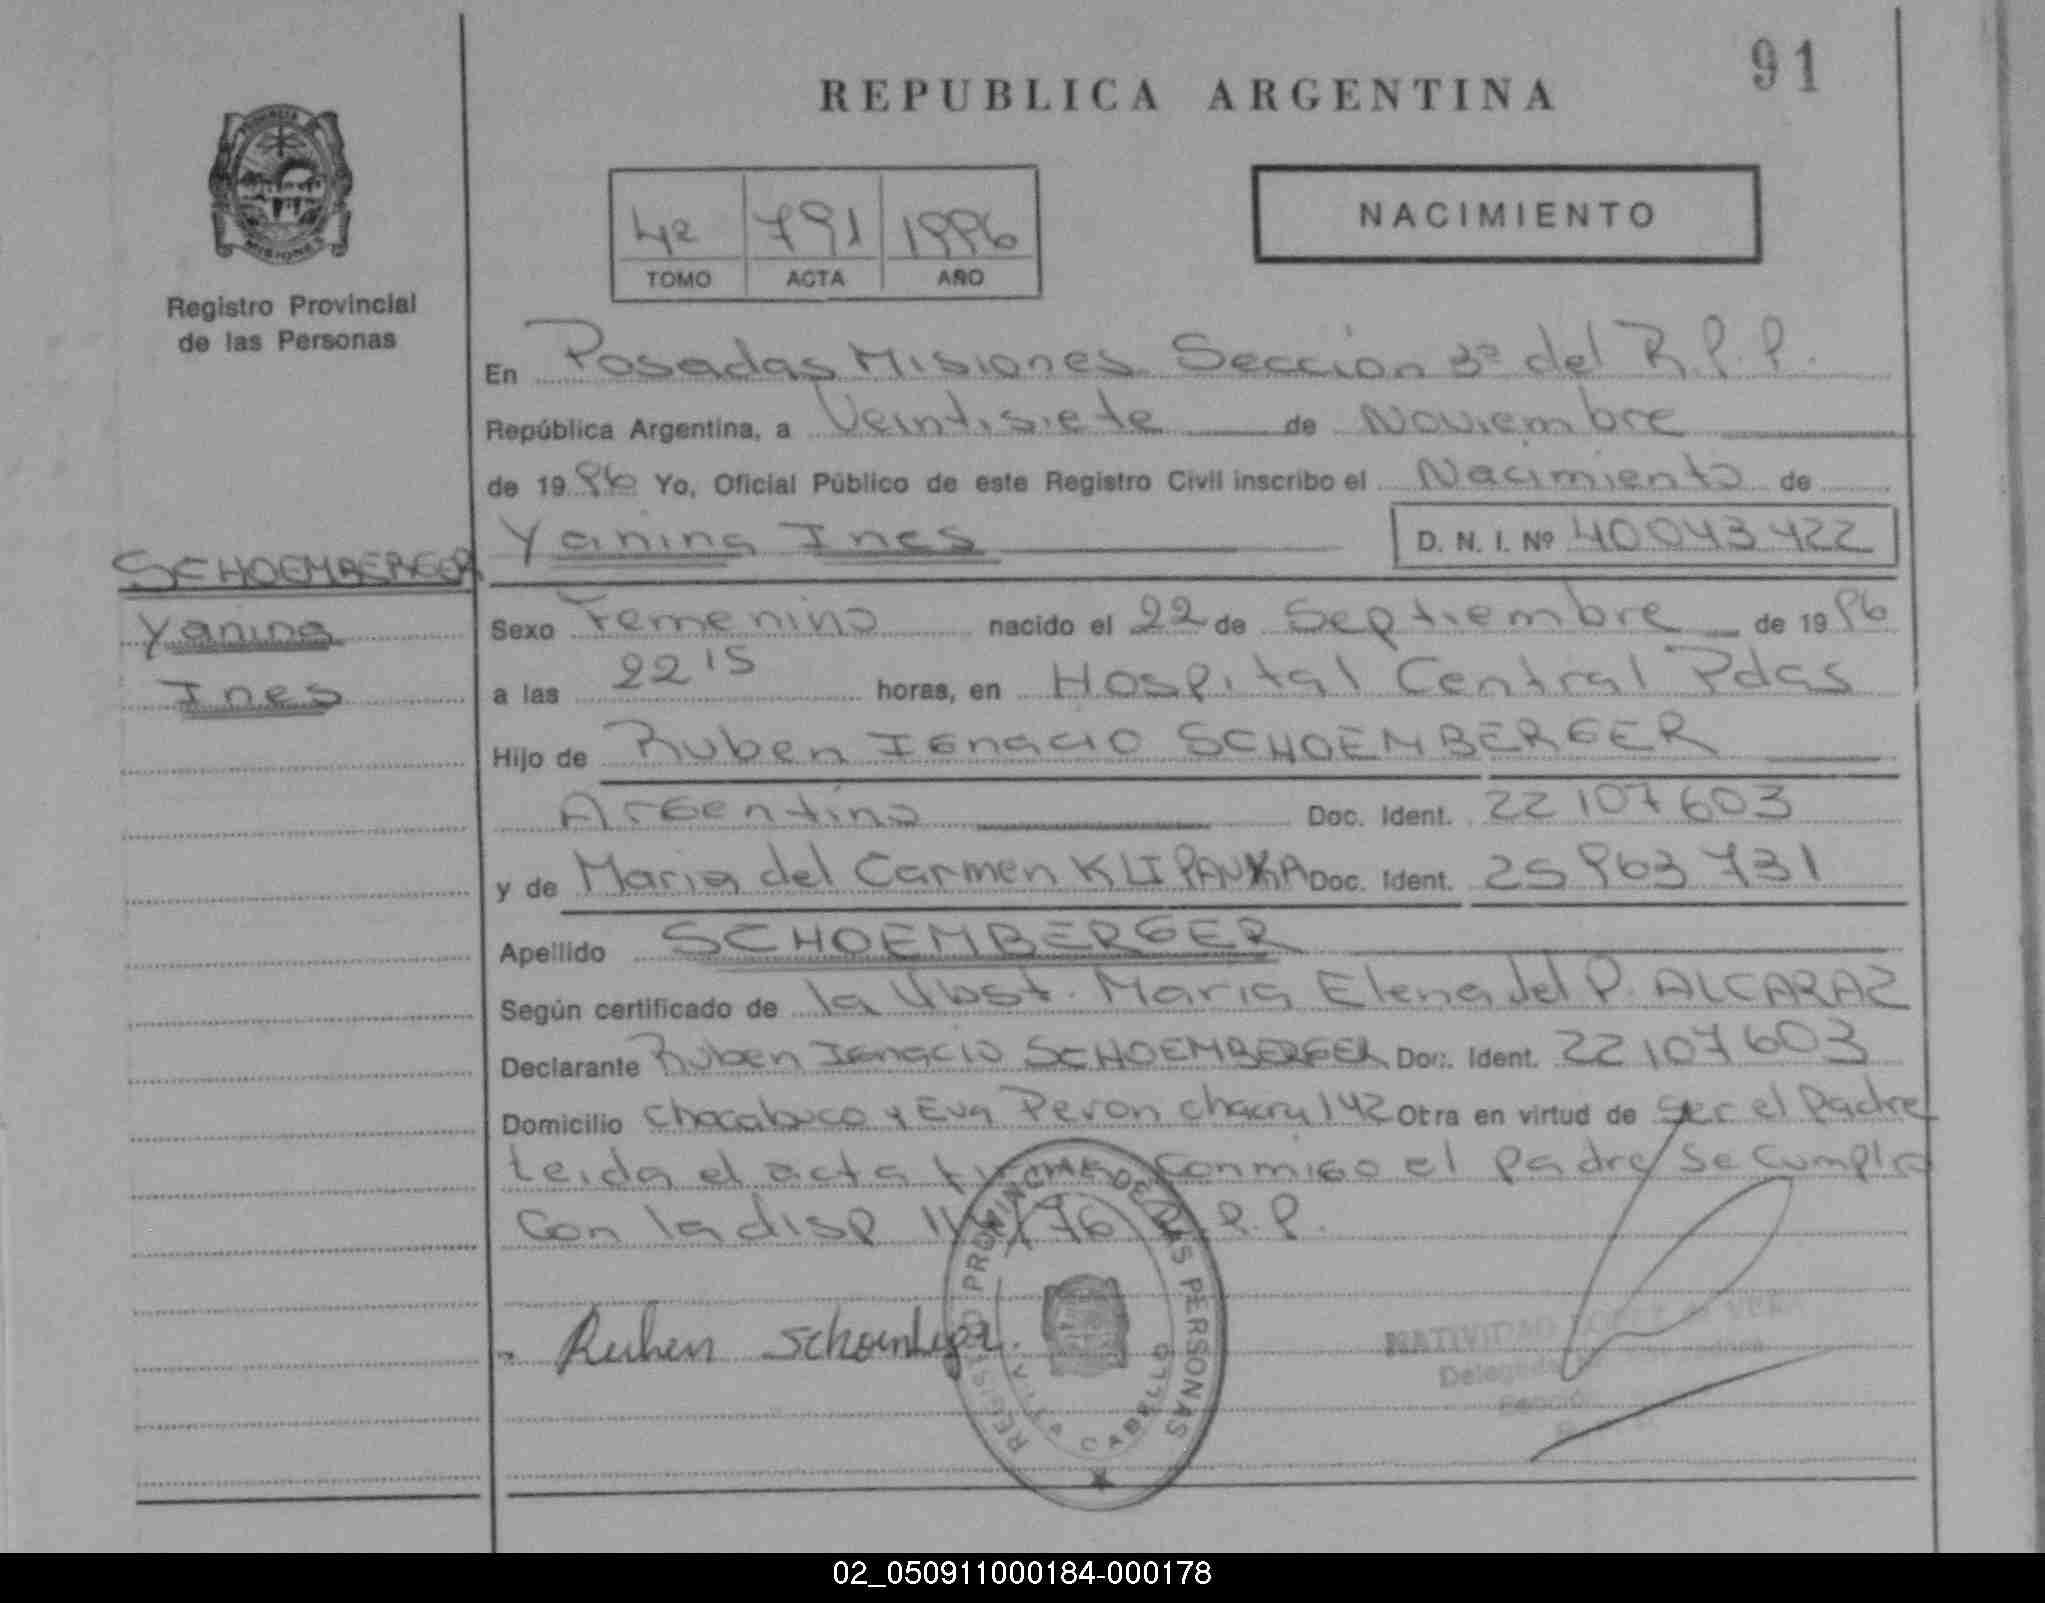 91
REPUBLICA ARGENTINA
MISIONES
Registro Provincial
de las Personas
791 1996
TOMO ACTA AÑO
NACIMIENTO
En Posadas Misiones Sección 3ª del R.P.P.
República Argentina, a Veintisiete de Noviembre
de 1996 Yo, Oficial Público de este Registro Civil inscribo el Nacimiento de
Yanina Ines D. N. I. Nº 40043422
SCHOEMBERGER
Yanina
Ines
Sexo Femenino nacido el 22 de Septiembre de 1996
a las 22 15 horas, en Hospital Central Pdas
Hijo de Ruben Ignacio SCHOEMBERGER
Argentino Doc. Ident. 22107603
y de Maria del Carmen Doc. Ident. 25963731
Apellido SCHOEMBERGER
Según certificado de la Obst. Maria Elena del P. ALCARAZ
Declarante Ruben Ignacio SCHOEMBERGER Doc. Ident. 22107603
Domicilio Chacabuco y Eva Peron chacra 142 Obra en virtud de ser el Padre
Leida el acta conmigo el padre Se Cumplio
Con la disp /76 R.P.
REGISTRO PROVINCIAL DE LAS PERSONAS
VILLA CABELLO
Ruben Schoemberger.
NATIVIDAD
02_050911000184-000178